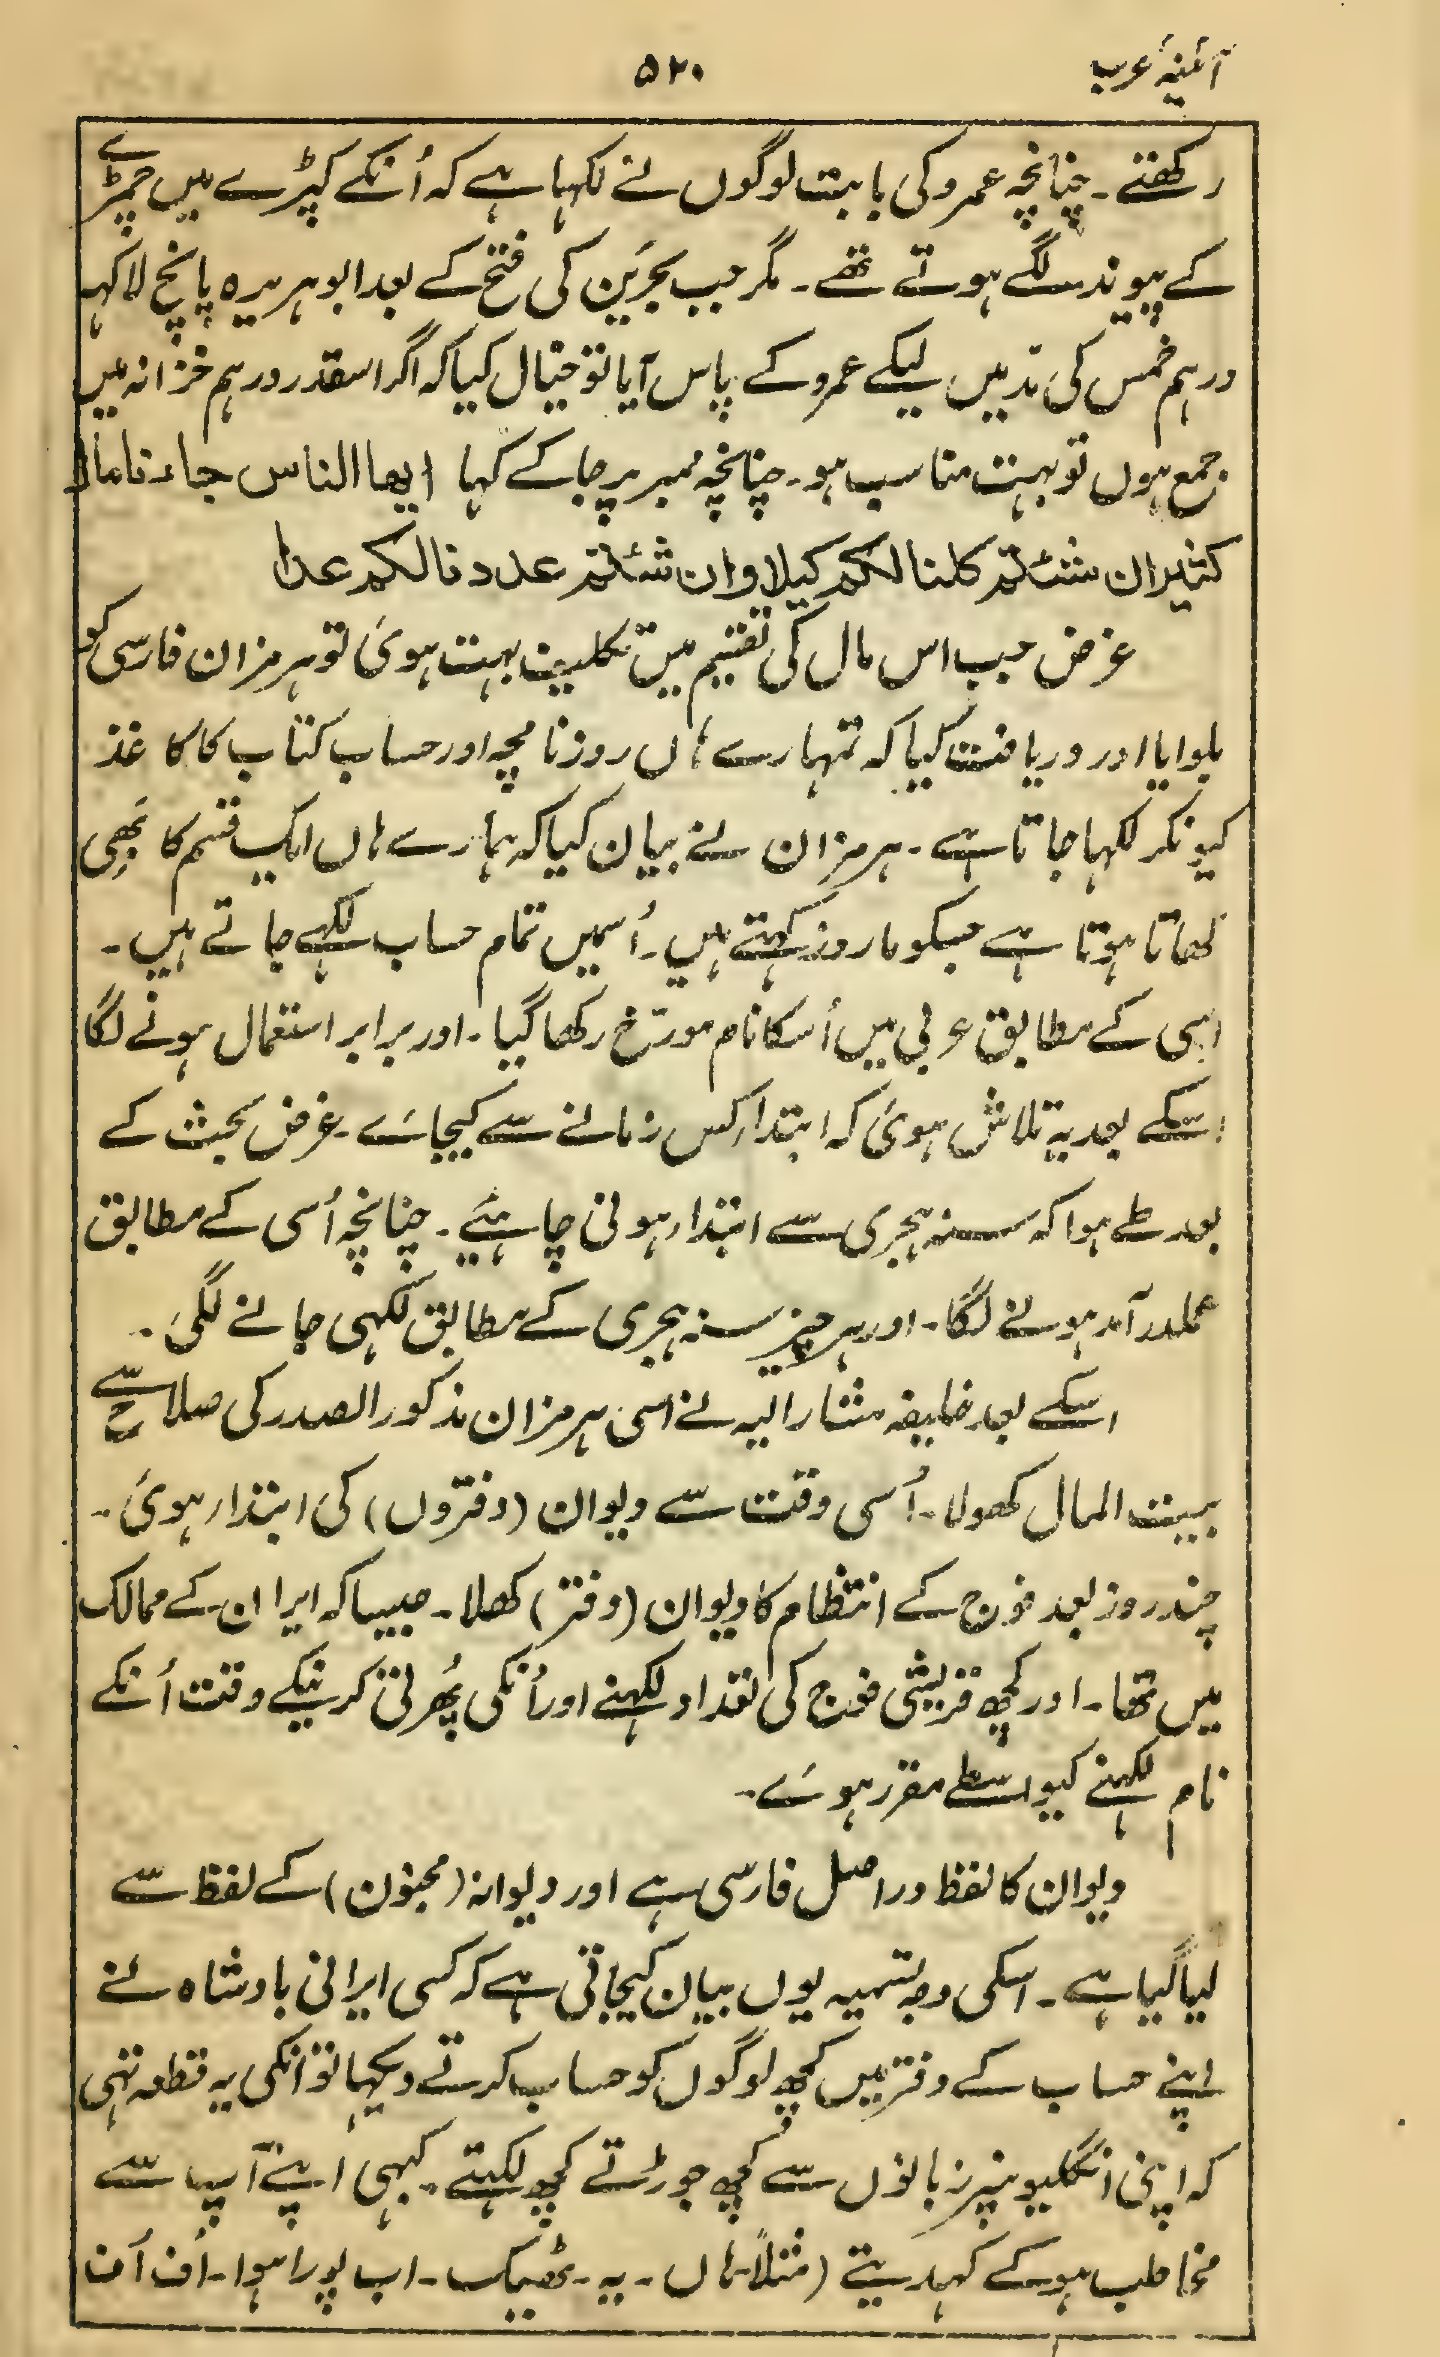 آئینۂ عرب
۵۲۰
رکھتے۔ چنانچہ عمرو کی بابت لوگوں نے لکہا ہے کہ اُنکے کپڑے میں چمڑے
کے پیوند لگے ہوتے تھے۔ مگر جب بحرین کی فتح کے بعد ابوہریرہ پانچ لاکہہ
درہم خمس کی مد میں لیکے عمرو کے پاس آیا تو خیال کیا کہ اگر اسقدر درہم خزانہ میں
جمع ہوں تو بہت مناسب ہو۔ چنانچہ ممبر پر جا کے کہا ایھا الناس جاءنا مال
کثیر ان شئتم کلنا لکم کیلا و ان شئتم عددنا لکم عدا
غرض جب اس مال کی تقسیم میں تکلیف بہت ہوئی تو ہرمزان فارسی کو
بلوایا اور دریافت کیا کہ تمہارے ہاں روزنامچہ اور حساب کتاب کا کاغذ
کیونکر لکہا جاتا ہے۔ ہرمزان نے بیان کیا کہ ہمارے ہاں ایک قسم کا بھی
کھاتا ہوتا ہے جسکو ماروز کہتے ہیں۔ اُسمیں تمام حساب لکہے جاتے ہیں۔
اسی کے مطابق عربی میں اُسکا نام مورّخ رکھا گیا۔ اور برابر استعمال ہونے لگا
اسکے بعد یہ تلاش ہوئی کہ ابتداء کس زمانے سے کیجائے۔ غرض بحث کے
بعد طے ہوا کہ سنہ ہجری سے ابتداء ہونی چاہئیے۔ چنانچہ اُسی کے مطابق
عملدرآمد ہونے لگا۔ اور ہر چیز سنہ ہجری کے مطابق لکہی جانے لگی۔
اسکے بعد خلیفہ مشار الیہ نے اسی ہرمزان مذکور الصدر کی صلاح سے
بیت المال کھولا۔ اُسی وقت سے دیوان (دفتروں) کی ابتداء ہوئی۔
چند روز بعد فوج کے انتظام کا دیوان (دفتر) کھلا۔ جیسا کہ ایران کے ممالک
میں تھا۔ اور کچھ قریشی فوج کی تعداد لکہنے اور اُنکی بھرتی کرنیکے وقت اُنکے
نام لکہنے کیواسطے مقرر ہوئے۔
دیوان کا لفظ دراصل فارسی ہے اور دیوانہ (مجنون) کے لفظ سے
لیا گیا ہے۔ اسکی وجہ تسمیہ یوں بیان کیجاتی ہے کہ کسی ایرانی بادشاہ نے
اپنے حساب کے دفتر میں کچھ لوگوں کو حساب کرتے دیکہا تو انکی یہ قطعہ تہی
کہ اپنی انگلیو نپر زبانوں سے کچھ جوڑتے کچھ لکہتے۔ کبہی اپنے آپ سے
مخاطب ہو کے کہدیتے (مثلاً ہاں۔ یہ۔ ٹھیک۔ اب پورا ہوا۔ اُف اُف